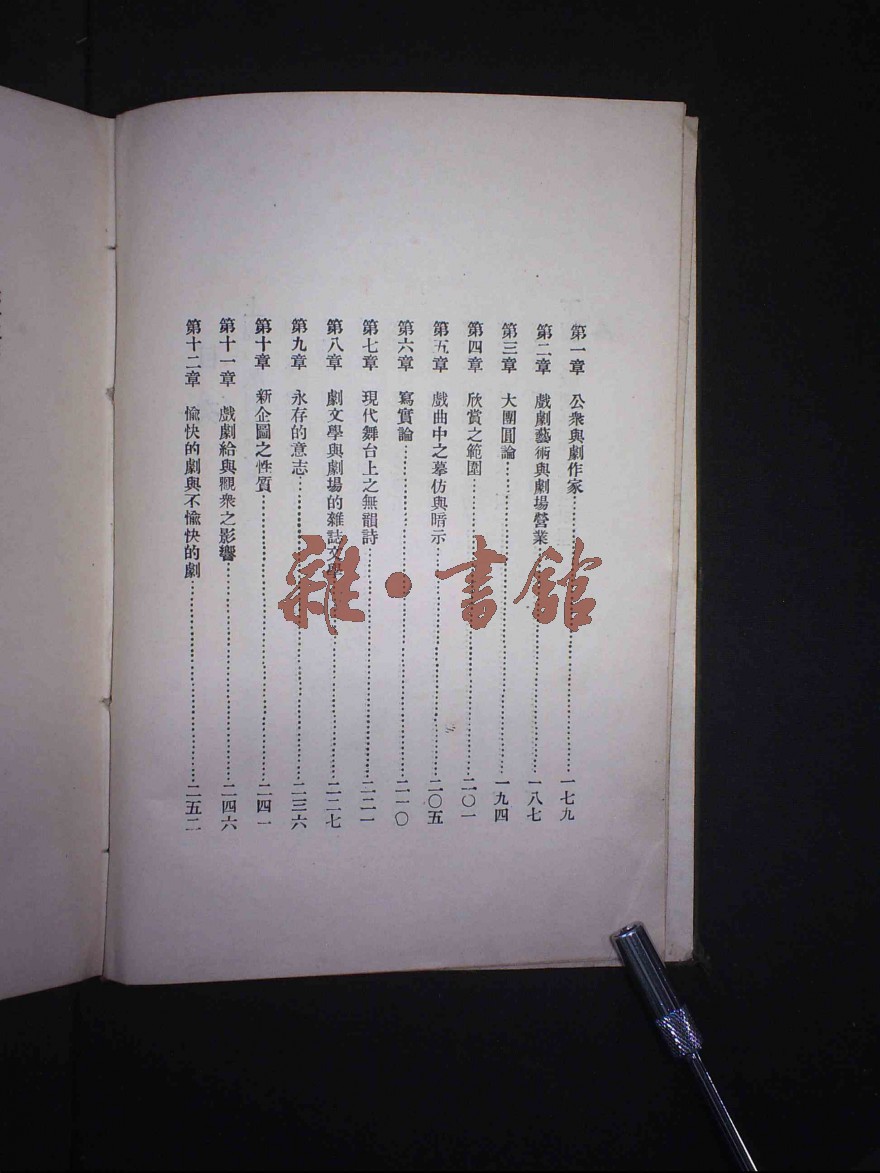 第一章　公衆與劇作家……一七九
第二章　戲劇藝術與劇場營業……一八七
第三章　大團圓論……一九四
第四章　欣賞之範圍……二〇一
第五章　戲曲中之摹仿與暗示……二〇五
第六章　寫實論……二一〇
第七章　現代舞台上之無韻詩……二二一
第八章　劇文學與劇場的雜誌文學……二二七
第九章　永存的意志……二三六
第十章　新企圖之性質……二四一
第十一章　戲劇給與觀衆之影響……二四六
第十二章　愉快的劇與不愉快的劇……二五二
雜·書館